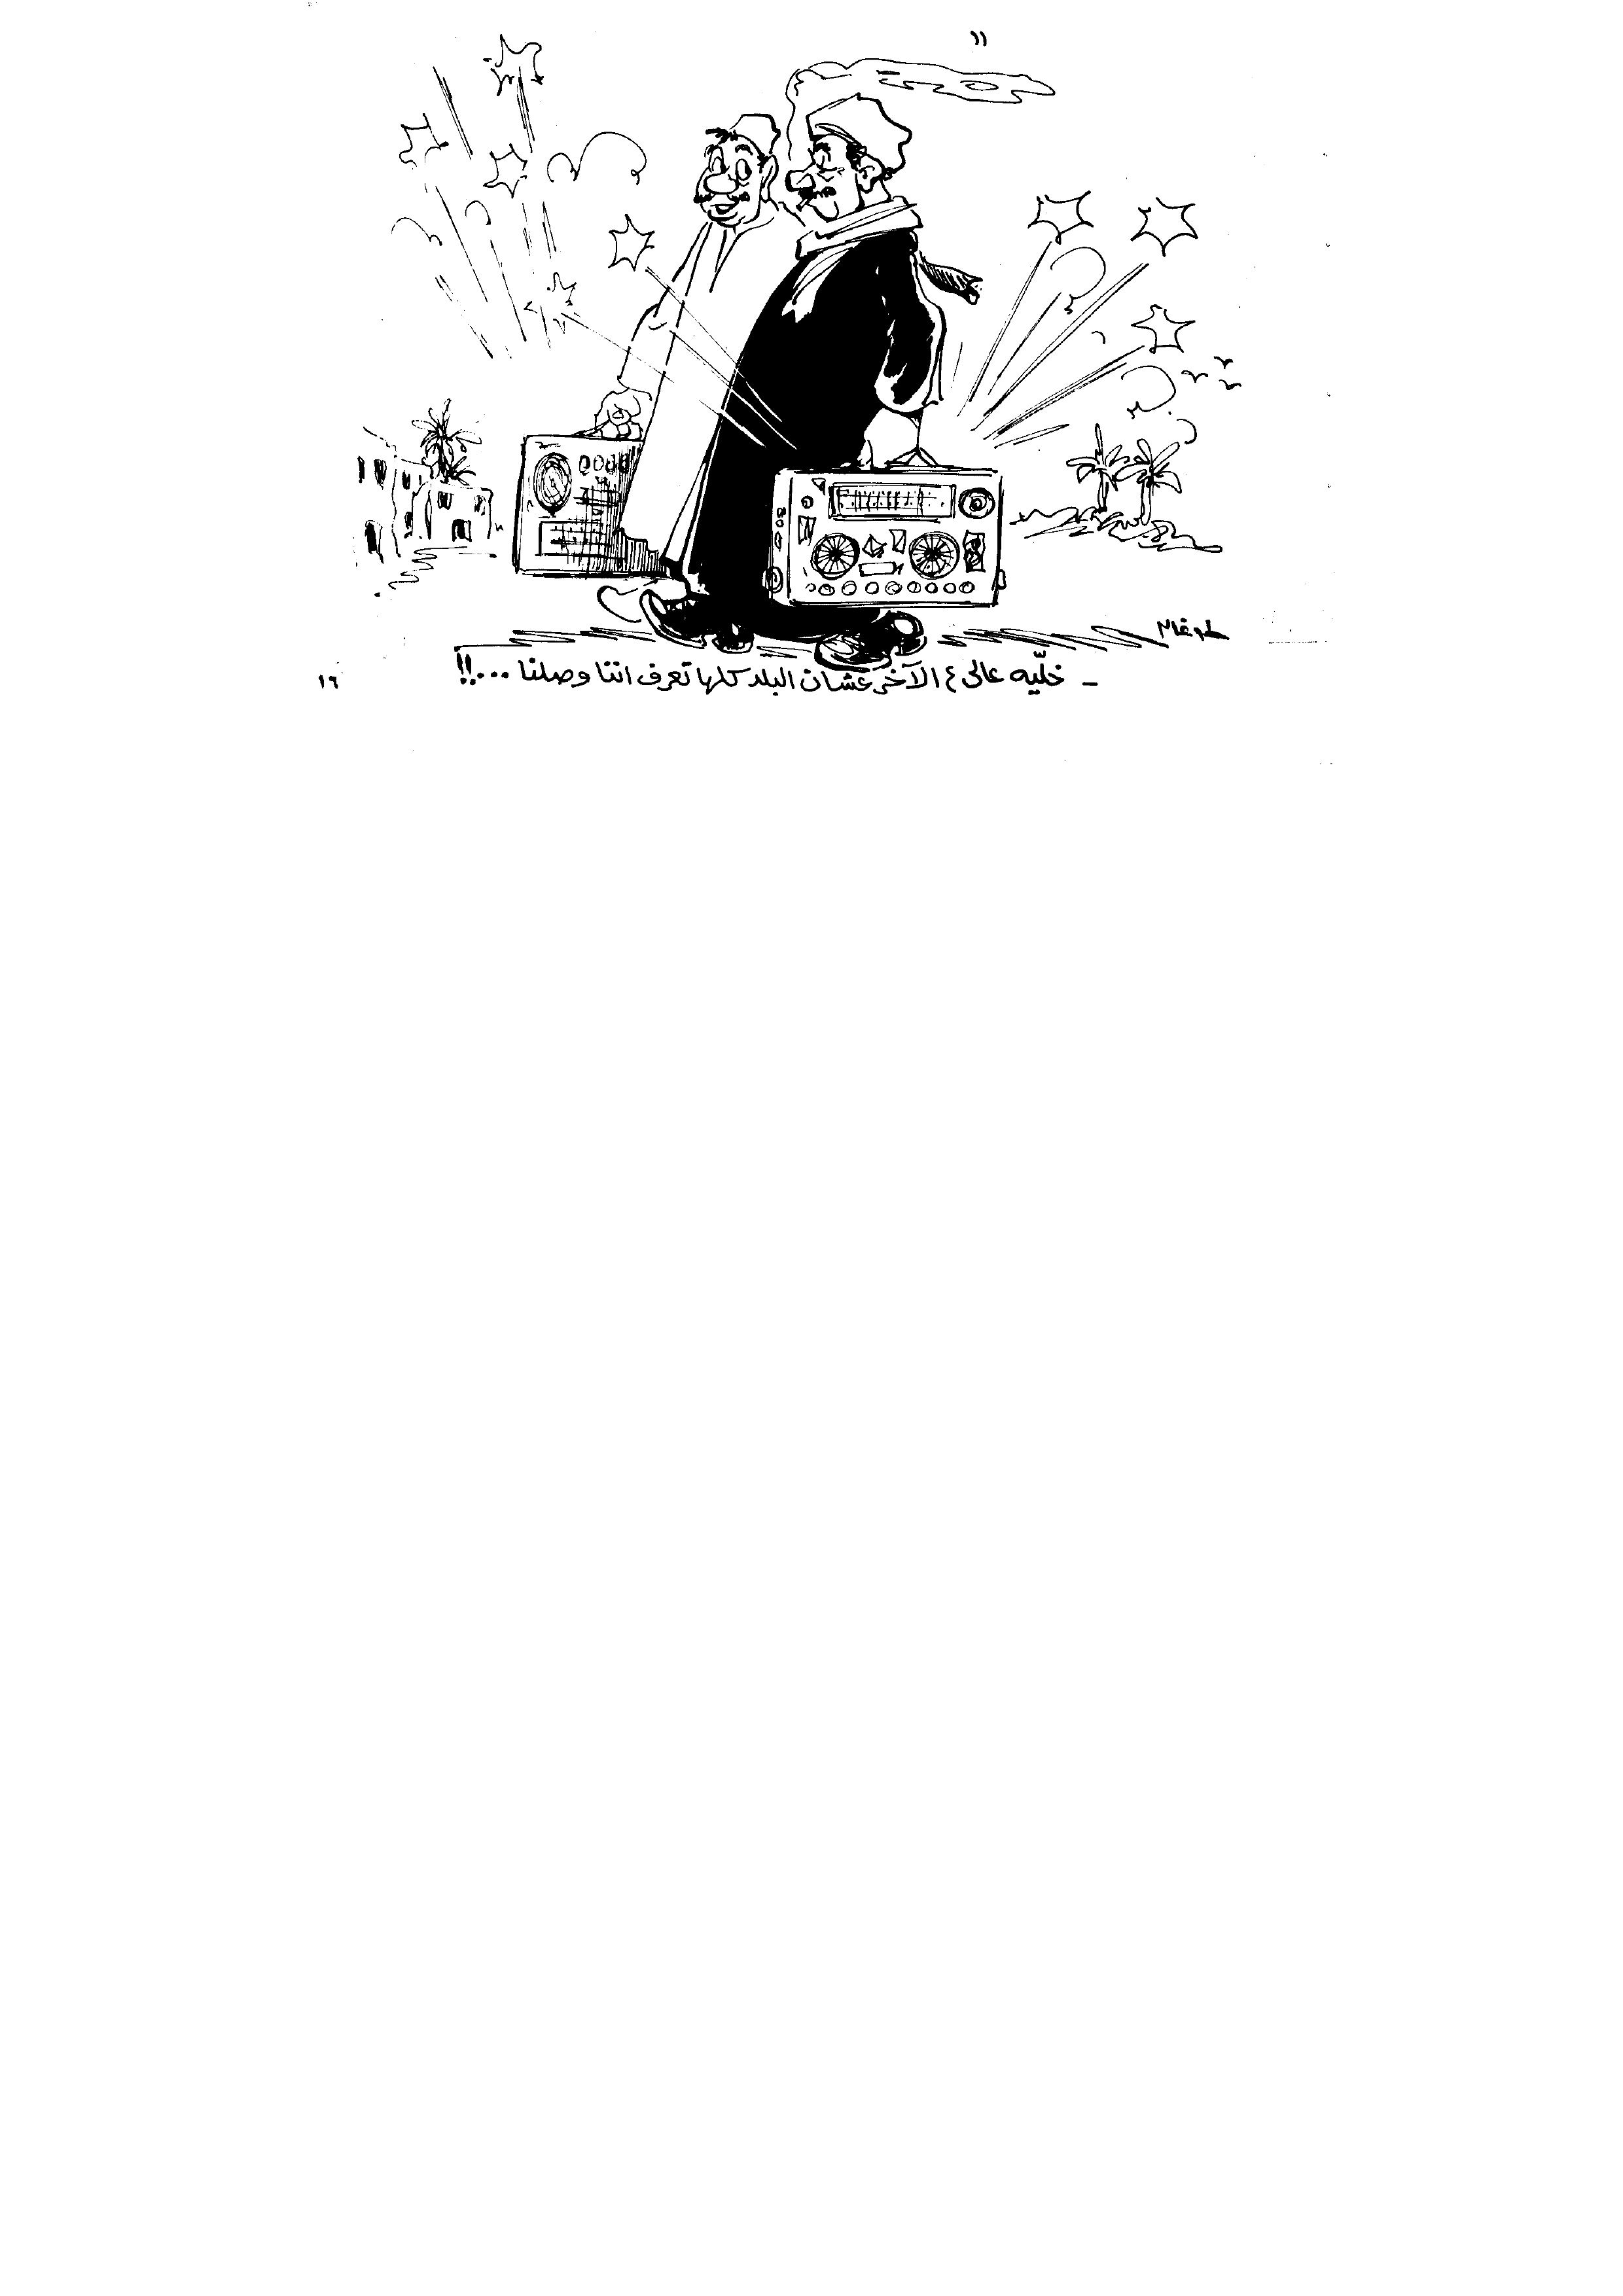 ١١
طوغان
- خلّيه عالى ع الآخر عشان البلد كلها تعرف اننا وصلنا ...!!
١٦